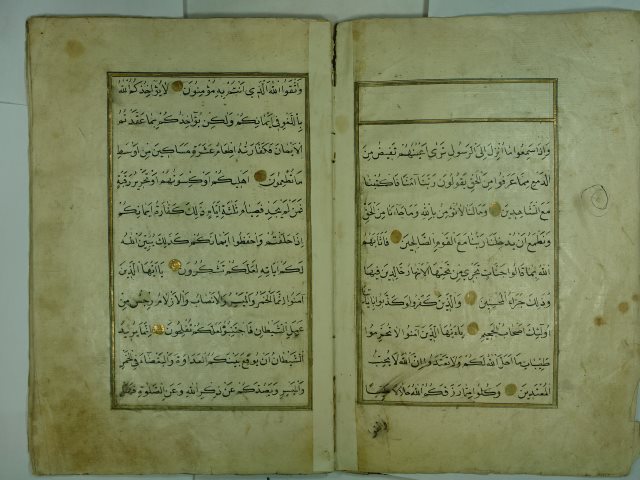 واذا سمعوا ما انزل الى الرسول ترى اعينهم تفيض من
الدمع مما عرفوا من الحق يقولون ربنا آمنا فاكتبنا
مع الشاهدين وما لنا لا نؤمن بالله وما جاءنا من الحق
ونطمع ان يدخلنا ربنا مع القوم الصالحين فاثابهم
الله بما قالوا جنات تجري من تحتها الانهار خالدين فيها
وذلك جزاء المحسنين والذين كفروا وكذبوا باياتنا
اولئك اصحاب الجحيم يا ايها الذين آمنوا لا تحرموا
طيبات ما احل الله لكم ولا تعتدوا ان الله لا يحب
المعتدين وكلوا مما رزقكم الله حلالا طيبا
واتقوا
واتقوا الله الذي انتم به مؤمنون لا يؤاخذكم الله
باللغو في ايمانكم ولكن يؤاخذكم بما عقدتم
الايمان فكفارته اطعام عشرة مساكين من اوسط
ما تطعمون اهليكم او كسوتهم او تحرير رقبة
فمن لم يجد فصيام ثلثة ايام ذلك كفارة ايمانكم
اذا حلفتم واحفظوا ايمانكم كذلك يبين الله
لكم اياته لعلكم تشكرون يا ايها الذين
آمنوا انما الخمر والميسر والانصاب والازلام رجس من
عمل الشيطان فاجتنبوه لعلكم تفلحون انما يريد
الشيطان ان يوقع بينكم العداوة والبغضاء في الخمر
والميسر ويصدكم عن ذكر الله وعن الصلوة فهل